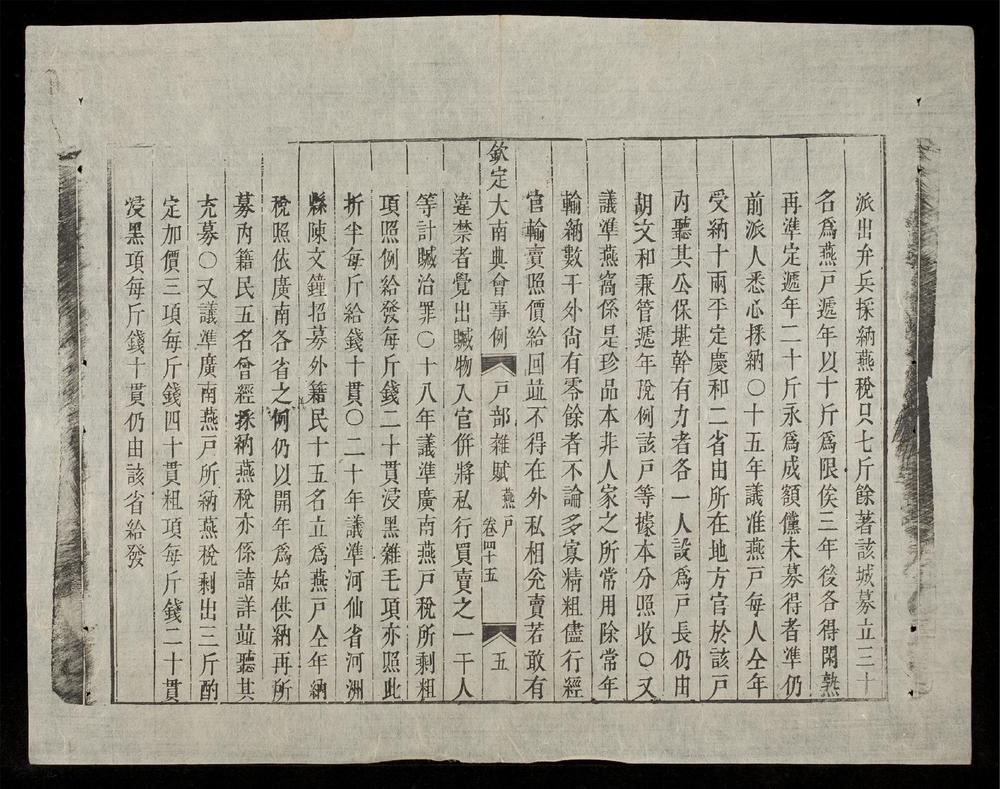 派出弁兵採納燕稅只七斤餘著該城募立三十
名爲燕戸遞年以十斤爲限俟三年後各得閑熟
再準定遞年二十斤永爲成額儻未募得者準仍
前派人悉心採納〇十五年議准燕戸每人仝年
受納十兩平定慶和二省由所在地方官於該戸
內聽其公保堪幹有力者各一人設爲戸長仍由
胡文和兼管遞年稅例該戸等據本分照收〇又
議準燕窩係是珍品本非人家之所常用除常年
輸納數干外尙有零餘者不論多寡精粗儘行經
官輸賣照價給回並不得在外私相兌賣若敢有
欽定大南典會事例 戸部雜賦 燕戸 卷四十五 五
違禁者覺出贓物入官併將私行買賣之一干人
等計贓治罪〇十八年議準廣南燕戸稅所剩粗
項照例給發每斤錢二十貫浸黑雜毛項亦照此
折半每斤給錢十貫〇二十年議準河仙省河洲
縣陳文鐘招募外籍民十五名立爲燕戸仝年納
稅照依廣南各省之例仍以開年爲始供納再所
募內籍民五名曾經採納燕稅亦係諳詳並聽其
充募〇又議準廣南燕戸所納燕稅剩出三斤酌
定加價三項每斤錢四十貫粗項每斤錢二十貫
浸黑項每斤錢十貫仍由該省給發